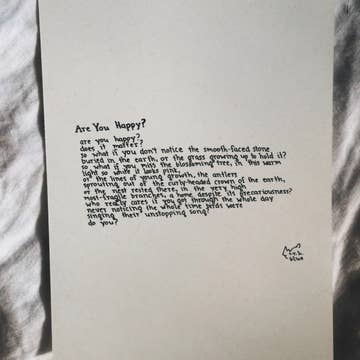 Are You Happy?
are you happy?
does it matter?
so what if you don't notice the smooth-faced stone
buried in the earth, or the grass growing up to hold it?
so what if you miss the blossoming tree, in this warm
light so white it looks pink,
or the lines of young growth, the antlers
sprouting out of the curly-headed crown of the earth,
or the nest rested there, in the very high
most-fragile branches, a home despite its precariousness?
who really cares if you got through the whole day
never noticing the whole time birds were
singing their unstopping song?
do you?